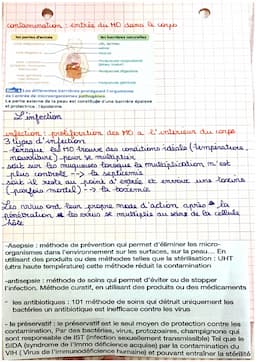 contamination : entrée du MO dans le corps
les portes d'entrées
les barrières naturelles
Les différentes barrières protégeant l'organisme
de l'entrée de microorganismes pathogènes.
La partie externe de la peau est constituée d'une barrière épaisse
et protectrice : l'épiderme.
L'infection
infection : prolifération des MO a l'interieur du corps
3 types d'infection
- lorsque le MO trouve des conditions idéale (température,
nourriture) pour se multiplier
- soit sur les muqueuses lorsque la multiplication n'est
plus controlé --> la septicemie
- soit il reste au point d'entrée et envoie une toxine
(parfois mortel) --> la toxemie
Les virus ont leur propre mode d'action après la
pénétration le virus se multiplie au sein de la cellule
hôte
-Asepsie : méthode de prévention qui permet d'éliminer les micro-
organismes dans l'environnement sur les surfaces, sur la peau... En
utilisant des produits ou des méthodes telles que la stérilisation : UHT
(ultra haute température) cette méthode réduit la contamination
-antisepsie : méthode de soins qui permet d'éviter ou de stopper
l'infection. Méthode curatif, en utilisant des produits ou des médicaments
- les antibiotiques : 101 méthode de soins qui détruit uniquement les
bactéries un antibiotique est inefficace contre les virus
- le préservatif : le préservatif est le seul moyen de protection contre les
contamination. Par des bactéries, virus, protozoaires, champignons qui
sont responsable de IST (infection sexuellement transmissible) Tel que le
SIDA (syndrome de l'immo déficience acquise) par la contamination du
VIH ( Virus de l'immunodéficience humaine) et pouvant entraîner la stérilité